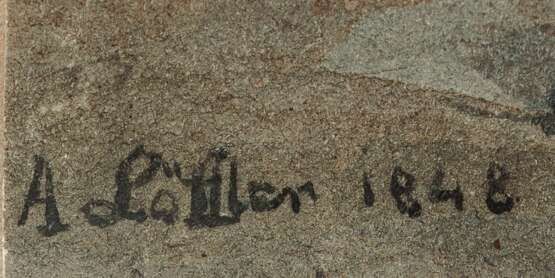 A. Löffler 1848